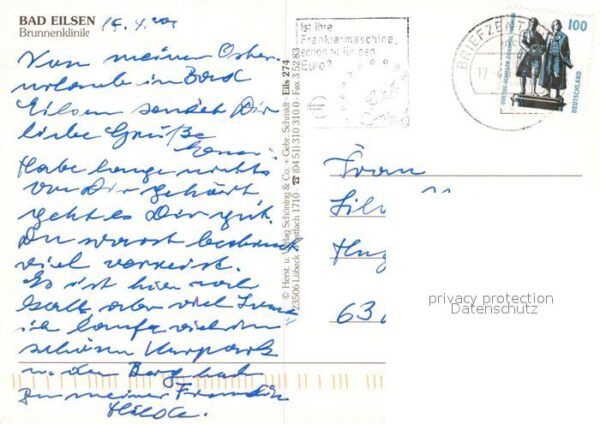 BAD EILSEN
Brunnenklinik
Von meiner Oster-
urlaub in Bad
Eilsen sendet Dir
liebe Grüße
Habe lange nichts
von Dir gehört
geht es Dir gut.
Du warst
viel verreist.
Es ist hier noch
kalt, aber viel
ich laufe viel im
schönen Kurpark
u. den Berg hoch
zu meiner Freundin
Hilde.
© Herst. u. Verlag Schöning & Co. + Gebr. Schmidt · Eils 274
23506 Lübeck · Postfach 1710 · ☎ (0451) 310 310 0 · Fax 3 52 83
Ist Ihre
Frankiermaschine
schon fit für den
Euro?
BRIEFZENT
17
100
GOETHE-SCHILLER-DENKMAL WEIMAR
DEUTSCHLAND
Frau
63
privacy protection
Datenschutz